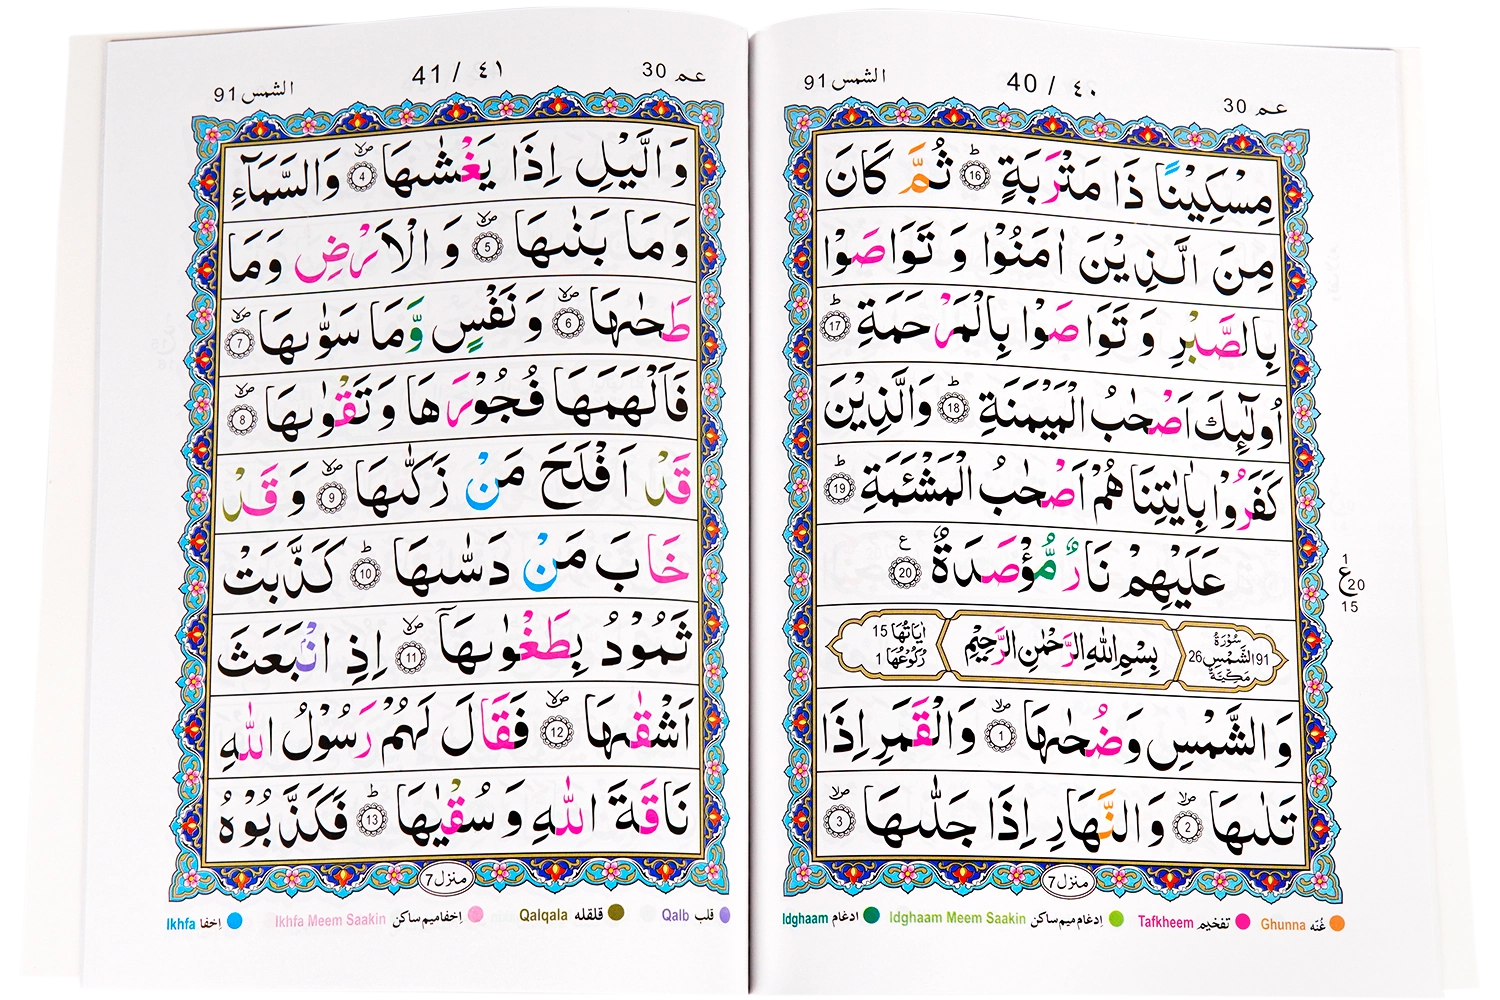 عم 30
40 / ٤٠
الشمس 91
مِسْكِيْنًا ذَا مَتْرَبَةٍ ؕ 16 ثُمَّ كَانَ
مِنَ الَّذِيْنَ اٰمَنُوْا وَ تَوَاصَوْا
بِالصَّبْرِ وَ تَوَاصَوْا بِالْمَرْحَمَةِ ؕ 17
اُولٰٓئِكَ اَصْحٰبُ الْمَيْمَنَةِ ؕ 18 وَالَّذِيْنَ
كَفَرُوْا بِاٰيٰتِنَا هُمْ اَصْحٰبُ الْمَشْـَٔمَةِ ؕ 19
عَلَيْهِمْ نَارٌ مُّؤْصَدَةٌ 20 ع
1
ع 20
15
91 سُوْرَةُ الشَّمْسِ مَكِّيَّةٌ 26 بِسْمِ اللّٰهِ الرَّحْمٰنِ الرَّحِيْمِ اٰيَاتُهَا 15 رُكُوْعُهَا 1
وَ الشَّمْسِ وَضُحٰىهَا ۙ 1 وَالْقَمَرِ اِذَا
تَلٰىهَا ۙ 2 وَالنَّهَارِ اِذَا جَلّٰىهَا ۙ 3
منزل 7
غُنّه Ghunna تفخيم Tafkheem اِدغام ميم ساكن Idghaam Meem Saakin ادغام Idghaam
عم 30
41 / ٤١
الشمس 91
وَ الَّيْلِ اِذَا يَغْشٰىهَا ۙ 4 وَالسَّمَآءِ
وَ مَا بَنٰىهَا ۙ 5 وَ الْاَرْضِ وَمَا
طَحٰىهَا ۙ 6 وَ نَفْسٍ وَّمَا سَوّٰىهَا ۙ 7
فَاَلْهَمَهَا فُجُوْرَهَا وَ تَقْوٰىهَا ۙ 8
قَدْ اَفْلَحَ مَنْ زَكّٰىهَا ۙ 9 وَ قَدْ
خَابَ مَنْ دَسّٰىهَا ؕ 10 كَذَّبَتْ
ثَمُوْدُ بِطَغْوٰىهَاۤ ۙ 11 اِذِ انْۢبَعَثَ
اَشْقٰىهَا ۙ 12 فَقَالَ لَهُمْ رَسُوْلُ اللّٰهِ
نَاقَةَ اللّٰهِ وَ سُقْيٰهَا ؕ 13 فَكَذَّبُوْهُ
منزل 7
قلب Qalb قلقله Qalqala اِخفا ميم ساكن Ikhfa Meem Saakin اِخفا Ikhfa